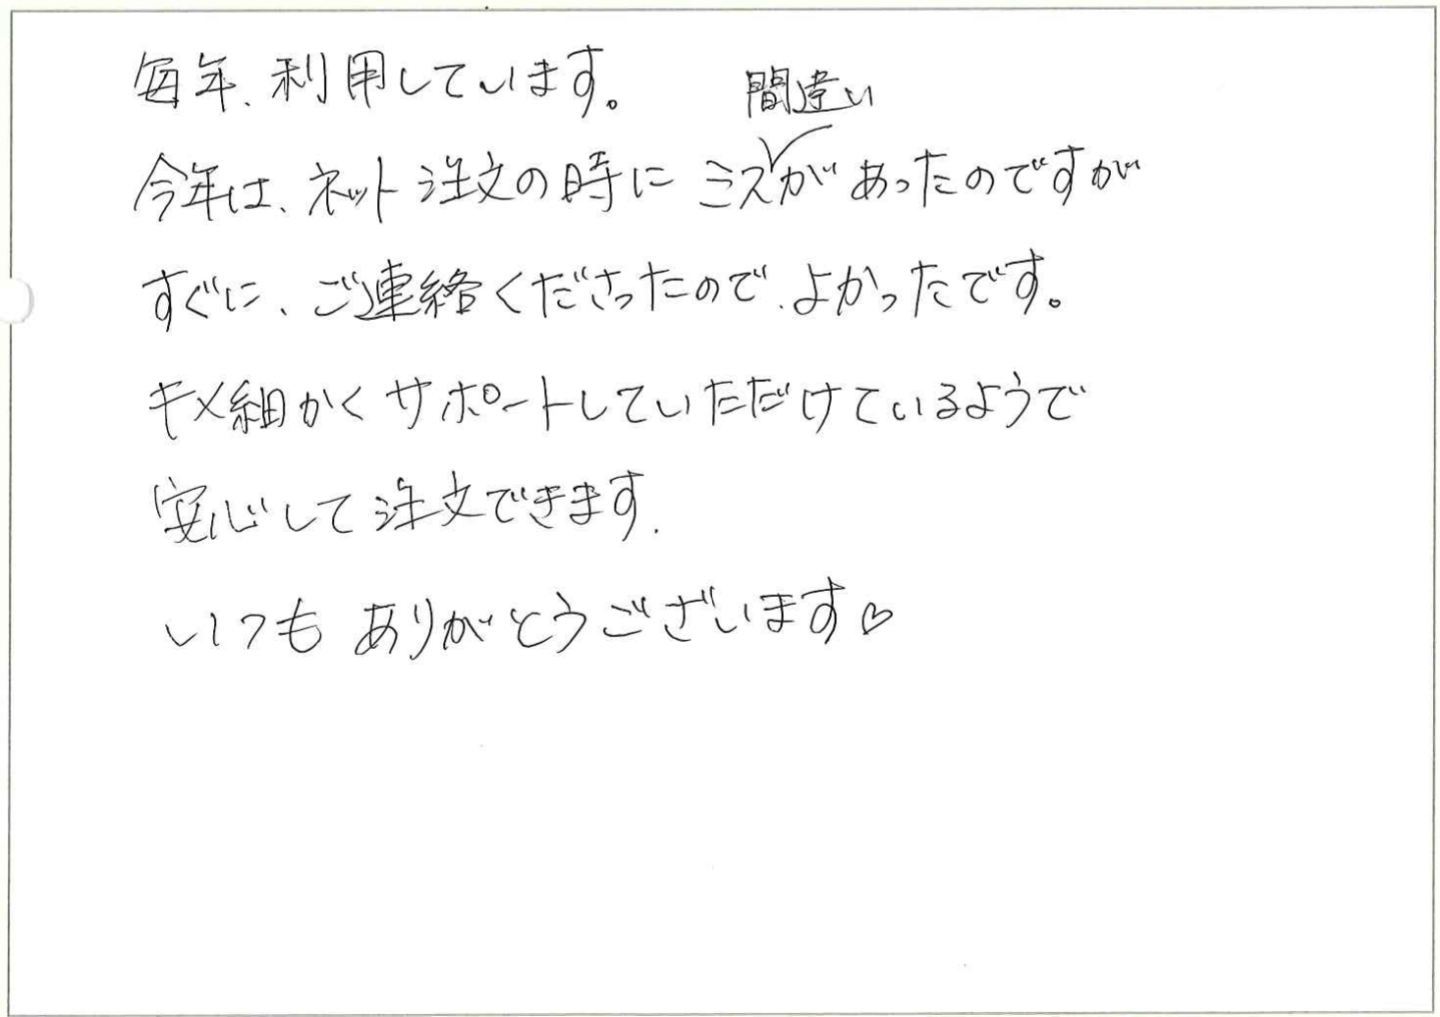 毎年、利用しています。
間違い
今年は、ネット注文の時にミスがあったのですが
すぐに、ご連絡くださったので、よかったです。
キメ細かくサポートしていただけているようで
安心して注文できます.
いつも ありがとうございます♡